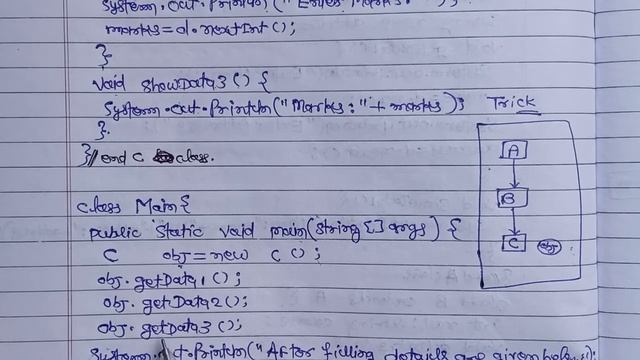 System.out.println("Enter Marks:");
marks=d.nextInt();
}
void showData3() {
System.out.println("Marks:"+marks);
}
}//end C class.
Trick
A
B
C obj
class Main{
public static void main(String[] args) {
C obj=new C();
obj.getData1();
obj.getData2();
obj.getData3();
System.out.println("After filling details are given below:");